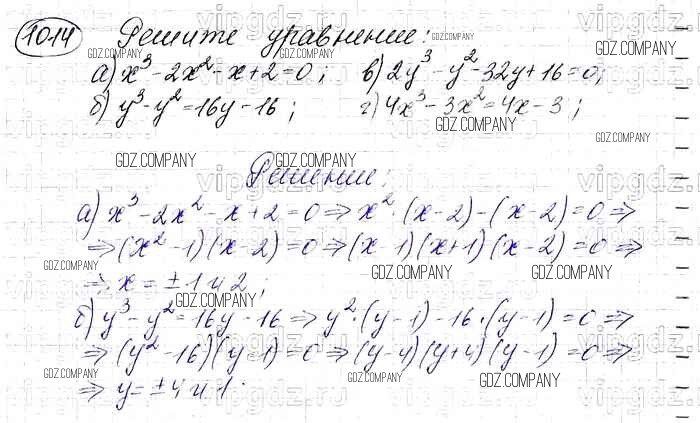 1014 Решите уравнение:
а) x³ - 2x² - x + 2 = 0; в) 2y³ - y² - 32y + 16 = 0;
б) y³ - y² = 16y - 16; г) 4x³ - 3x² = 4x - 3;
Решение:
а) x³ - 2x² - x + 2 = 0 ⇒ x² · (x - 2) - (x - 2) = 0 ⇒
⇒ (x² - 1)(x - 2) = 0 ⇒ (x - 1)(x + 1)(x - 2) = 0 ⇒
⇒ x = ±1 и 2;
б) y³ - y² = 16y - 16 ⇒ y² · (y - 1) - 16 · (y - 1) = 0 ⇒
⇒ (y² - 16)(y - 1) = 0 ⇒ (y - 4)(y + 4)(y - 1) = 0 ⇒
⇒ y = ±4 и 1.
GDZ.COMPANY
vipgdz.ru